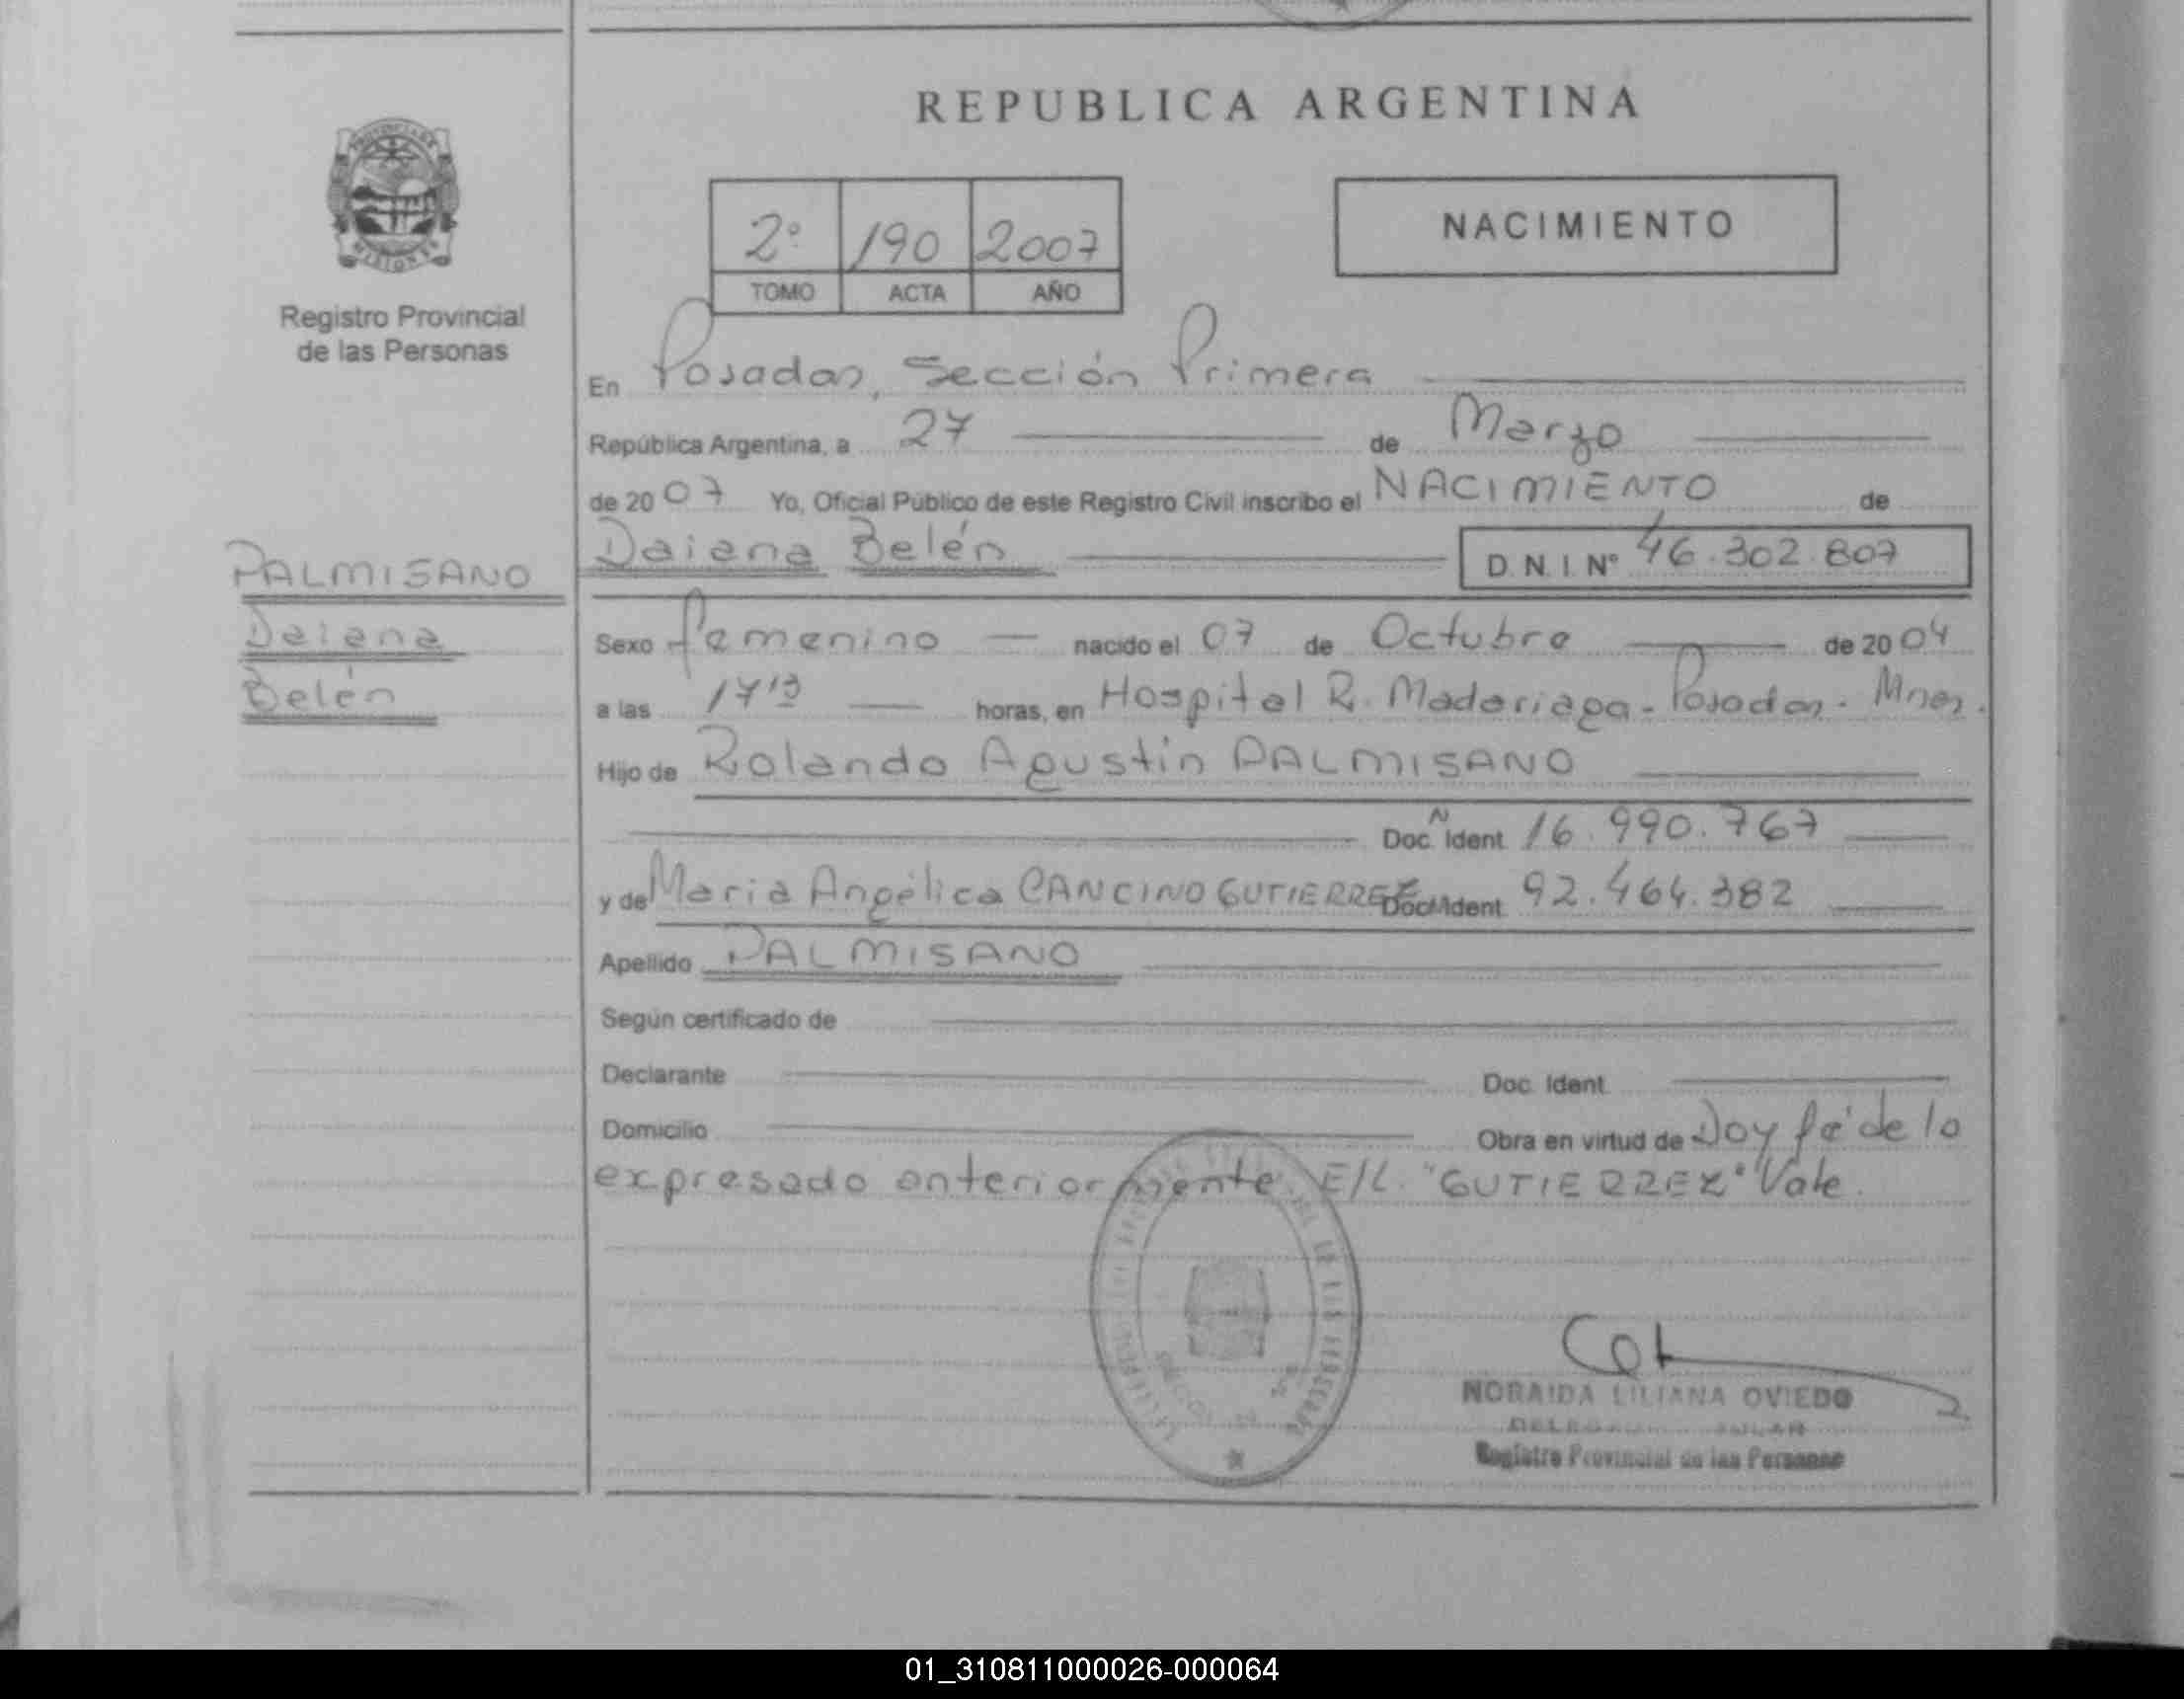 REPUBLICA ARGENTINA
PROVINCIA DE
MISIONES
Registro Provincial
de las Personas
2° 190 2007
TOMO ACTA AÑO
NACIMIENTO
En Posadas, Sección Primera
República Argentina, a 27 de Marzo
de 2007 Yo, Oficial Público de este Registro Civil inscribo el NACIMIENTO de
Daiana Belén D.N.I. Nº 46.302.807
PALMISANO
Daiana
Belén
Sexo femenino nacido el 07 de Octubre de 2004
a las horas, en Hospital R. Madariaga - Posadas - Mnes.
Hijo de Rolando Agustín PALMISANO
Doc. Ident. 16.990.767
y de María Angélica CANCINO GUTIERREZ Doc. Ident. 92.464.382
Apellido PALMISANO
Según certificado de
Declarante Doc. Ident.
Domicilio Obra en virtud de Doy fé de lo
expresado anteriormente. E/L. "GUTIERREZ" Vale.
NORAIDA LILIANA OVIEDO
Registro Provincial de las Personas
01_310811000026-000064